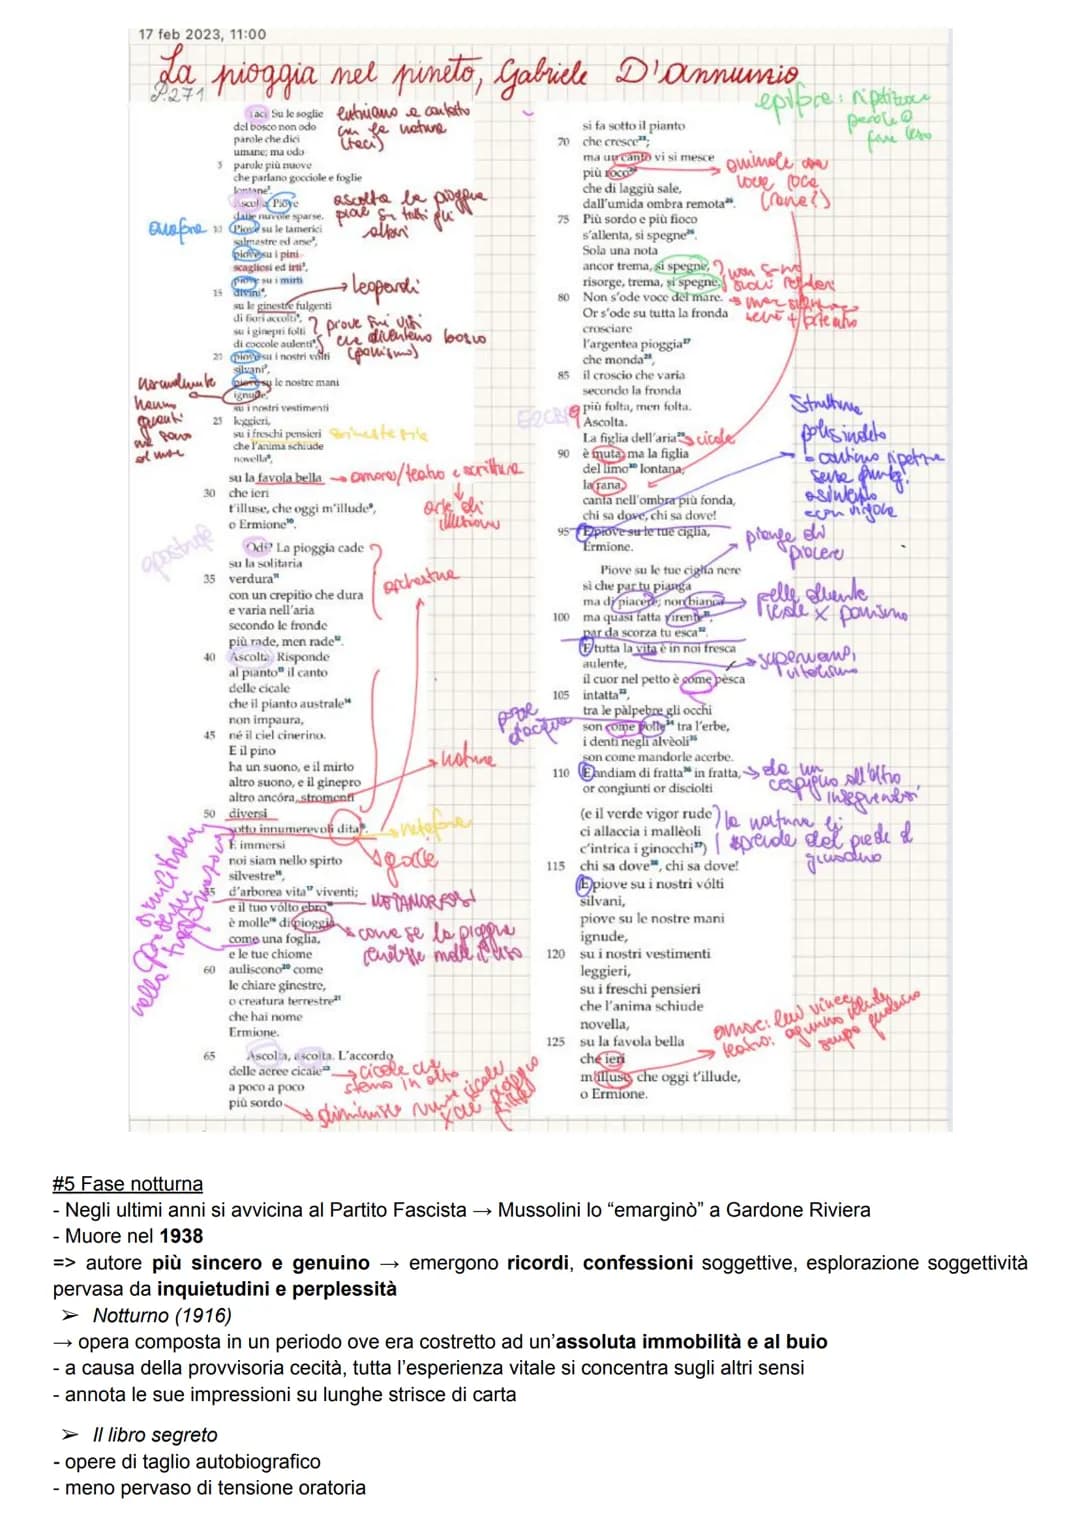 17 feb 2023, 11:00
La pioggia nel pineto, Gabriele D'Annunzio
P.271
Taci. Su le soglie
del bosco non odo
parole che dici
umane; ma odo
5 parole più nuove
che parlano gocciole e foglie
lontane.
Ascolta. Piove
dalle nuvole sparse.
10 Piove su le tamerici
salmastre ed arse,
piove su i pini
scagliosi ed irti,
piove su i mirti
15 divini,
su le ginestre fulgenti
di fiori accolti,
su i ginepri folti
di coccole aulenti,
20 piove su i nostri vólti
silvani,
piove su le nostre mani
ignude,
su i nostri vestimenti
25 leggieri,
su i freschi pensieri
che l'anima schiude
novella,
su la favola bella
30 che ieri
t'illuse, che oggi m'illude,
o Ermione.
Odi? La pioggia cade
su la solitaria
35 verdura
con un crepitìo che dura
e varia nell'aria
secondo le fronde
più rade, men rade.
40 Ascolta. Risponde
al pianto il canto
delle cicale
che il pianto australe
non impaura,
45 né il ciel cinerino.
E il pino
ha un suono, e il mirto
altro suono, e il ginepro
altro ancóra, stromenti
50 diversi
sotto innumerevoli dita.
E immersi
noi siam nello spirto
silvestre,
55 d'arborea vita viventi;
e il tuo vólto ebro
è molle di pioggia
come una foglia,
e le tue chiome
60 auliscono come
le chiare ginestre,
o creatura terrestre
che hai nome
Ermione.
65 Ascolta, ascolta. L'accordo
delle aeree cicale
a poco a poco
più sordo
entriamo a contatto
con la natura
(taci)
ascolta la pioggia
anafora
leopardi
piove sui visi
che diventano bosco
(panismo)
normalmente
hanno
guanti
amore/teatro e scrittura
arte di
illusione
apostrofe
orchestra
natura
metafora
gocce
METAMORFOSI
come se la pioggia
cicale che
stanno in alto
si fa sotto il pianto
70 che cresce;
ma un canto vi si mesce
più roco
che di laggiù sale,
dall'umida ombra remota.
75 Più sordo e più fioco
s'allenta, si spegne.
Sola una nota
ancor trema, si spegne,
risorge, trema, si spegne.
80 Non s'ode voce del mare.
Or s'ode su tutta la fronda
crosciare
l'argentea pioggia
che monda,
85 il croscio che varia
secondo la fronda
più folta, men folta.
Ascolta.
La figlia dell'aria
90 è muta; ma la figlia
del limo lontana,
la rana,
canta nell'ombra più fonda,
chi sa dove, chi sa dove!
95 E piove su le tue ciglia,
Ermione.
Piove su le tue ciglia nere
sì che par tu pianga
ma di piacere; non bianca
100 ma quasi fatta virente,
par da scorza tu esca.
E tutta la vita è in noi fresca
aulente,
il cuor nel petto è come pèsca
105 intatta,
tra le pàlpebre gli occhi
son come polle tra l'erbe,
i denti negli alvèoli
son come mandorle acerbe.
110 E andiam di fratta in fratta,
or congiunti or disciolti
(e il verde vigor rude
ci allaccia i mallèoli
c'intrica i ginocchi)
115 chi sa dove, chi sa dove!
E piove su i nostri vólti
silvani,
piove su le nostre mani
ignude,
120 su i nostri vestimenti
leggieri,
su i freschi pensieri
che l'anima schiude
novella,
125 su la favola bella
che ieri
m'illuse, che oggi t'illude,
o Ermione.
animale con
voce roca
(rane?)
cicale
Struttura
polisindeto
piange di
piacere
superuomo,
vitalismo
da un
cespuglio all'altro
la natura li
#5 Fase notturna
- Negli ultimi anni si avvicina al Partito Fascista → Mussolini lo “emarginò” a Gardone Riviera
- Muore nel 1938
=> autore più sincero e genuino → emergono ricordi, confessioni soggettive, esplorazione soggettività
pervasa da inquietudini e perplessità
➢ Notturno (1916)
→ opera composta in un periodo ove era costretto ad un’assoluta immobilità e al buio
- a causa della provvisoria cecità, tutta l’esperienza vitale si concentra sugli altri sensi
- annota le sue impressioni su lunghe strisce di carta
➢ Il libro segreto
- opere di taglio autobiografico
- meno pervaso di tensione oratoria